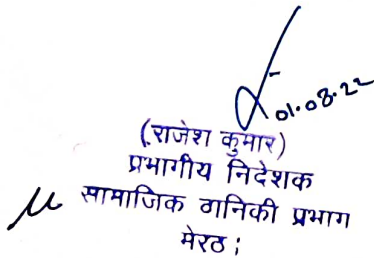 01.08.22
(राजेश कुमार)
प्रभागीय निदेशक
सामाजिक वानिकी प्रभाग
मेरठ ;